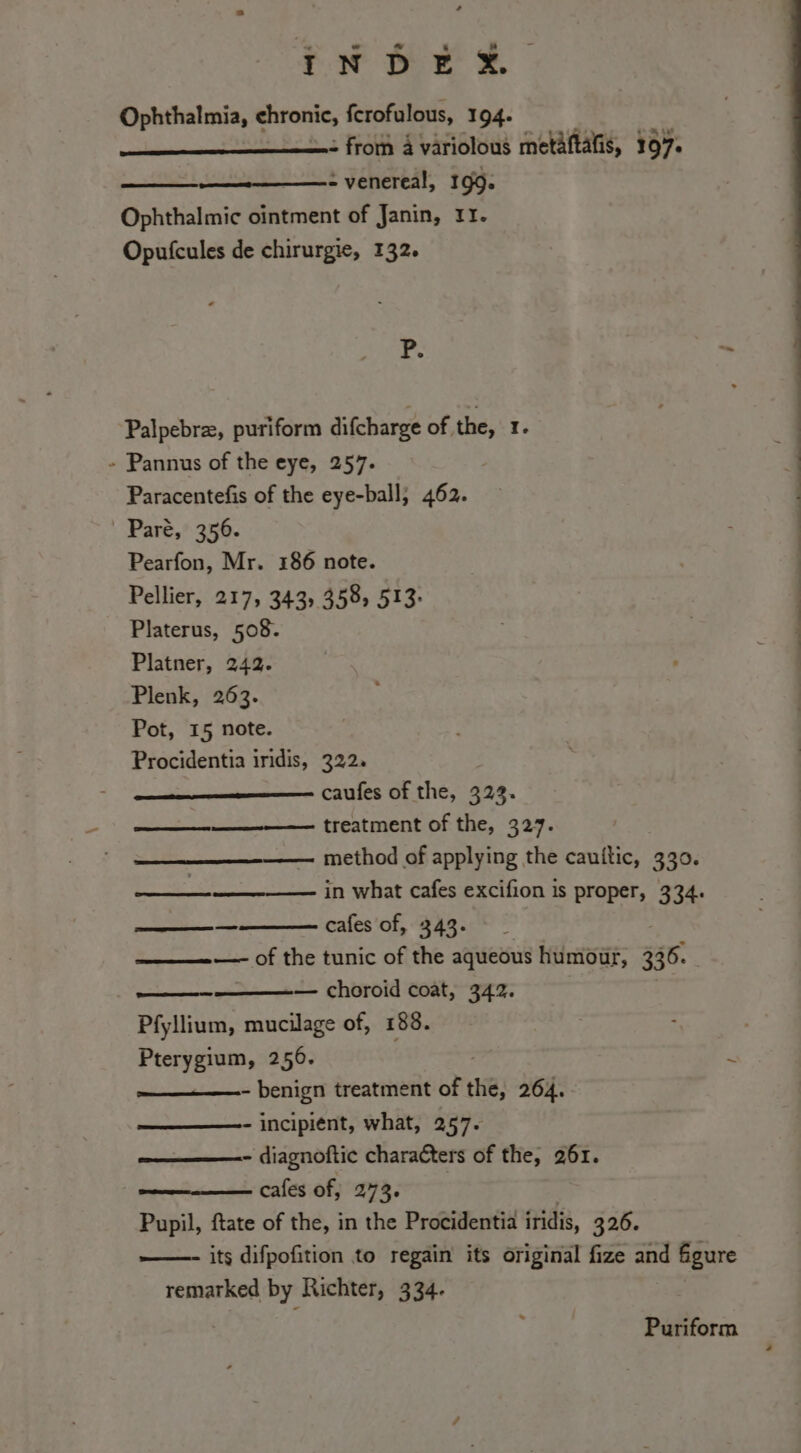 INDEX.
Ophthalmia, chronic, ſcrofulous, 194.
———— from a variolous metaſtaſis, 197.
———— venereal, 199.
Ophthalmic ointment of Janin, 11.
Opuſcules de chirurgie, 132.
P.
Palpebræ, puriform diſcharge of the, 1.
Pannus of the eye, 257.
Paracenteſis of the eye-ball; 462.
Parè, 356.
Pearſon, Mr. 186 note.
Pellier, 217, 343, 358, 513.
Platerus, 508.
Platner, 242.
Plenk, 263.
Pot, 15 note.
Procidentia iridis, 322.
———— cauſes of the, 323.
———— treatment of the, 327.
———— method of applying the cauſtic, 330.
———— in what caſes exciſion is proper, 334.
———— caſes of, 343.
———— of the tunic of the aqueous humour, 336.
———— choroid coat, 342.
Pſyllium, mucilage of, 188.
Pterygium, 256.
———— benign treatment of the, 264.
———— incipient, what, 257.
———— diagnoſtic characters of the, 261.
———— caſes of, 273.
Pupil, ſtate of the, in the Procidentia iridis, 326.
—— its diſpoſition to regain its original ſize and figure
remarked by Richter, 334.
Puriform